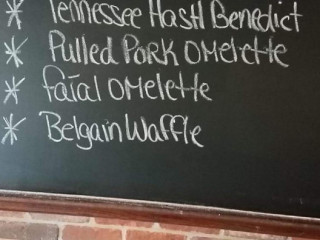 * Tennessee Hash Benedict
* Pulled Pork Omelette
* Fatal Omelette
* Belgain Waffle